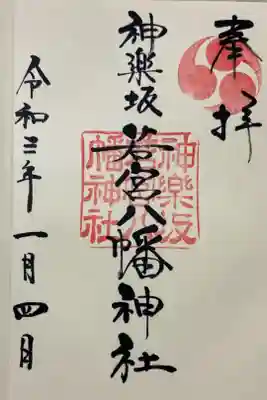 奉拝
神楽坂若宮八幡神社
神樂坂若宮八幡神社
令和三年一月四日